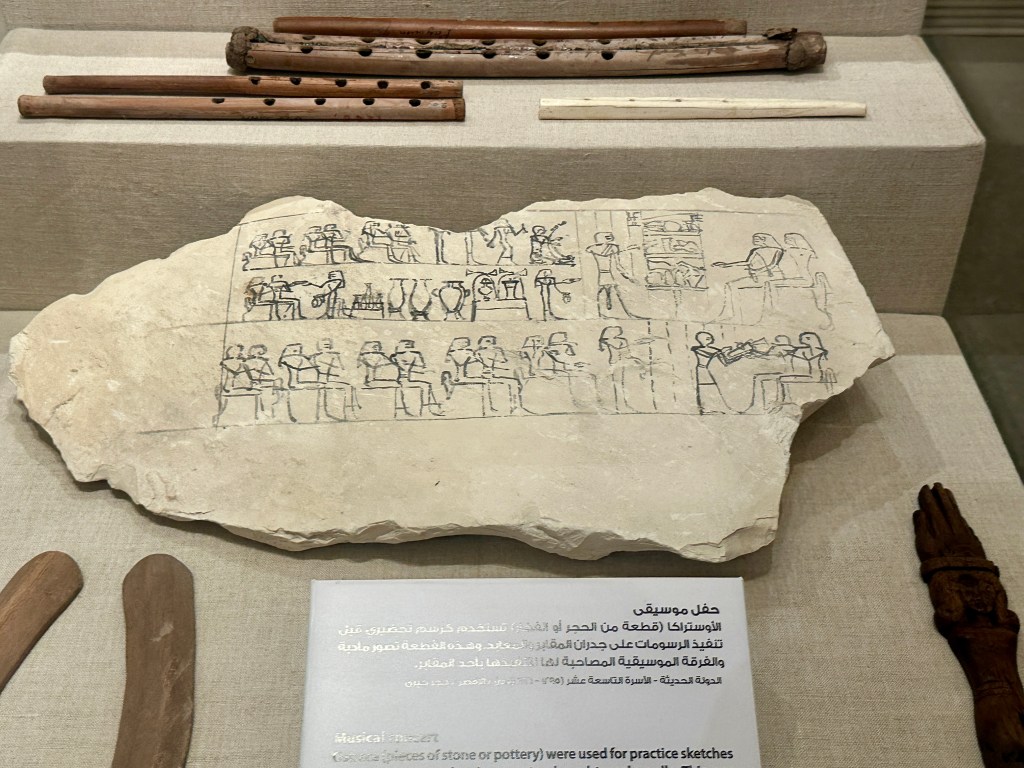 حفل موسيقى
الأوستراكا (قطعة من الحجر أو الفخار) تستخدم كرسم تحضيري قبل
تنفيذ الرسومات على جدران المقابر والمعابد. وهذه القطعة تصور مأدبة
والفرقة الموسيقية المصاحبة لها لتنفيذها بأحد المقابر.
الدولة الحديثة - الأسرة التاسعة عشر
Musical concert
(pieces of stone or pottery) were used for practice sketches